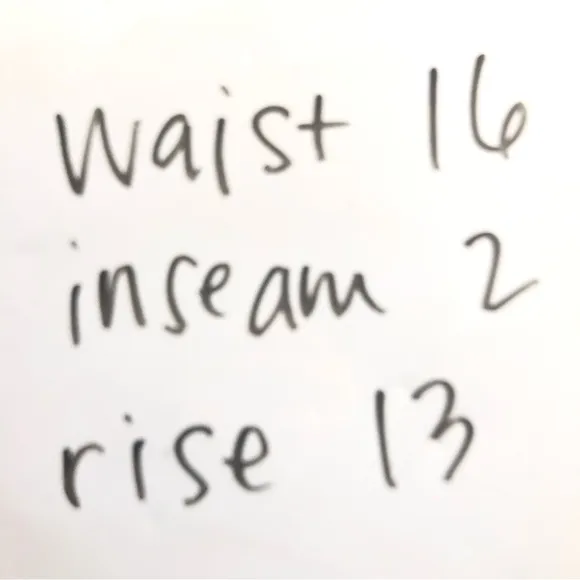 waist 16
inseam 2
rise 13